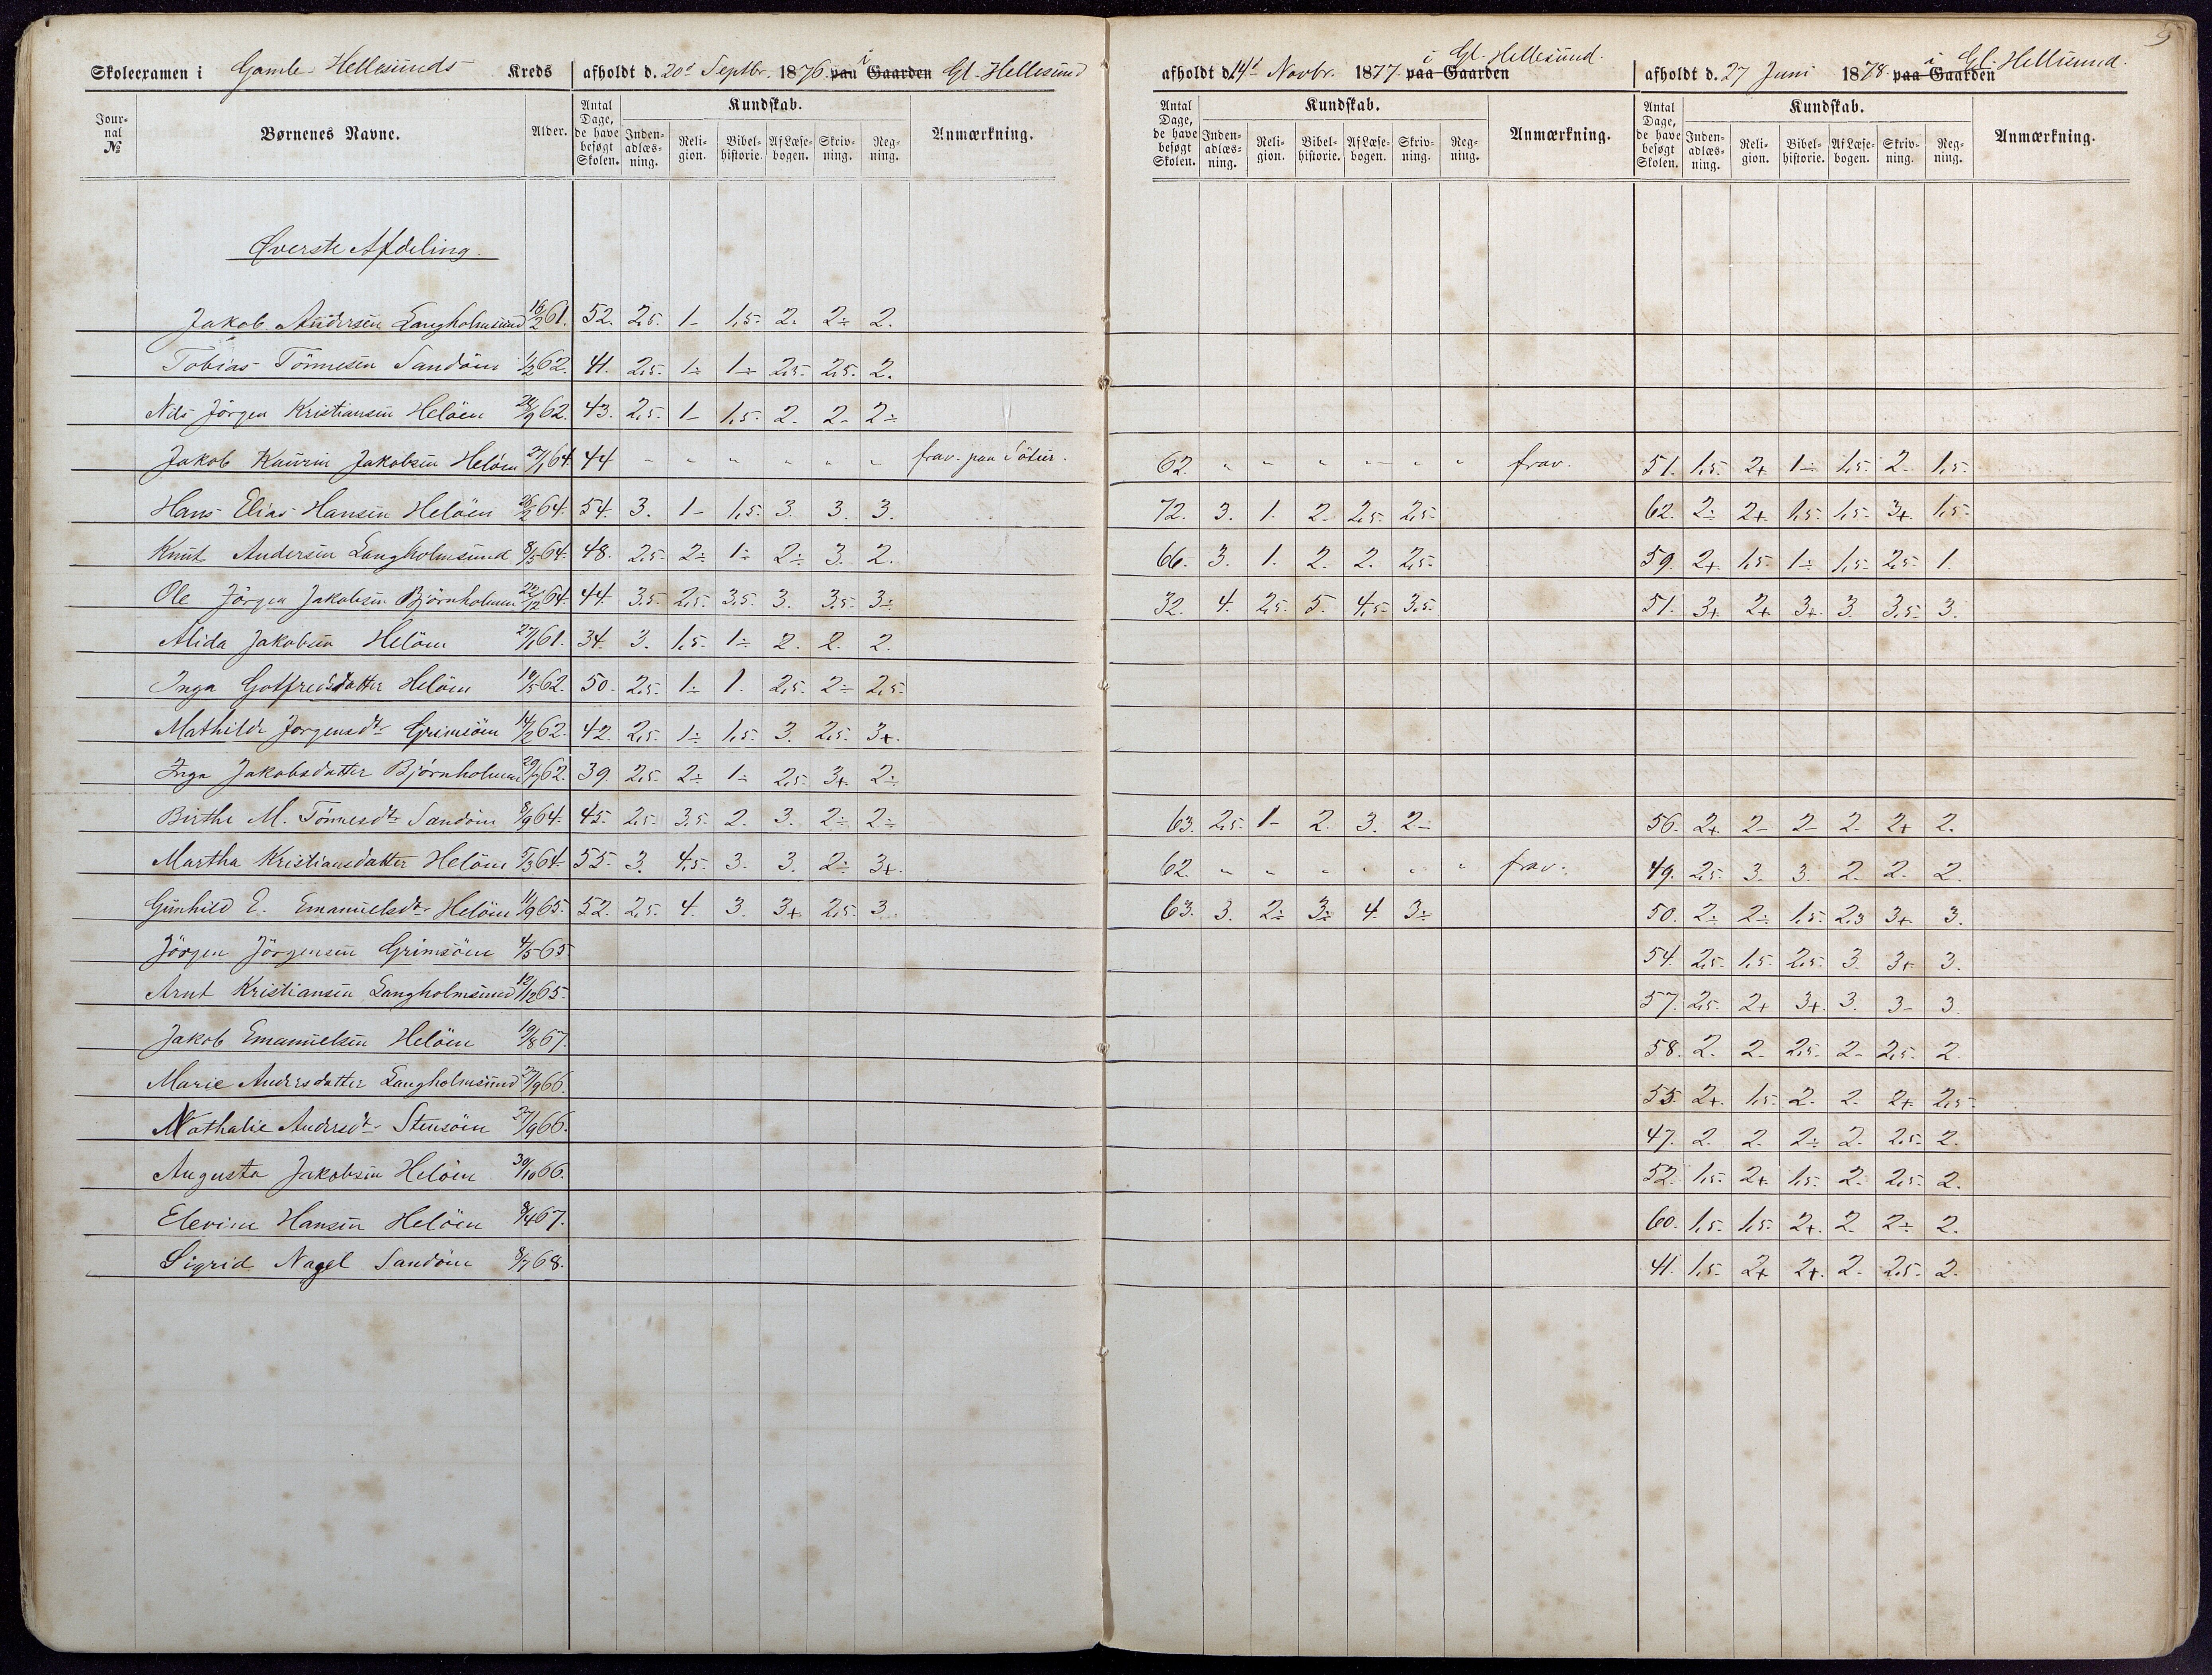 5
Skoleexamen i Gamle Hellesunds Kreds afholdt d. 20d Septbr. 1876 paa Gaarden i Gl. Hellesund afholdt d. 14d Novbr. 1877 paa Gaarden i Gl. Hellesund. afholdt d. 27 Juni 1878 paa Gaarden i Gl. Hellesund.
Jour-nal № Børnenes Navne. Alder. Antal Dage, de have besøgt Skolen. Kundskab. Inden-adlæs-ning. Reli-gion. Bibel-historie. Af Læse-bogen. Skriv-ning. Reg-ning. Anmærkning. Antal Dage, de have besøgt Skolen. Kundskab. Inden-adlæs-ning. Reli-gion. Bibel-historie. Af Læse-bogen. Skriv-ning. Reg-ning. Anmærkning. Antal Dage, de have besøgt Skolen. Kundskab. Inden-adlæs-ning. Reli-gion. Bibel-historie. Af Læse-bogen. Skriv-ning. Reg-ning. Anmærkning.
Øverste Afdeling.
Jakob Andersen Langholmsund 61. 52. 2,5. 1- 1,5. 2. 2÷ 2.
Tobias Tönnesen Sandöen 1/2 62. 41. 2,5. 1÷ 1÷ 2,5. 2,5. 2.
Nils Jörgen Kristiansen Helöen 28/9 62. 43. 2,5. 1- 1,5. 2. 2- 2÷
Jakob Kaurin Jakobsen Helöen 27/1 64. 44 " " " " " " frav. paa 62. " " " " " " frav. 51. 1,5. 2+ 1÷ 1,5. 2. 1,5.
Hans Elias Hansen Helöen 26/2 64. 54. 3. 1- 1,5. 3. 3. 3. 72. 3. 1. 2. 2,5. 2,5. 62. 2÷ 2+ 1,5. 1,5. 3+ 1,5.
Knut Andersen Langholmsund 8/5 64. 48. 2,5. 2÷ 1÷ 2÷ 3. 2. 66. 3. 1. 2. 2. 2,5. 59. 2+ 1,5. 1÷ 1,5. 2,5. 1.
Ole Jörgen Jakobsen Björnholmen 22/12 64. 44. 3,5. 2,5. 3,5. 3. 3,5. 3÷ 32. 4. 2,5. 5. 4,5. 3,5. 51. 3+ 2+ 3+ 3. 3,5. 3.
Alida Jakobsen Helöen 27/1 61. 34. 3. 1,5. 1÷ 2. 2. 2.
Inga Gotfredsdatter Helöen 10/5 62. 50. 2,5. 1÷ 1. 2,5. 2÷ 2,5.
Mathilde Jorgensdtr Grimsöen 14/2 62. 42. 2,5. 1÷ 1,5. 3. 2,5. 3+.
Inga Jakobsdatter Björnholmen 29/7 62. 39. 2,5. 2÷ 1÷ 2,5. 3+ 2÷
Birthe M. Tönnesdtr Sandöen 8/9 64. 45. 2,5. 3,5. 2. 3. 2÷ 2÷ 63. 2,5. 1- 2. 3. 2÷ 56. 2+ 2- 2- 2. 2+ 2.
Martha Kristiansdatter Helöen 5/3 64. 55. 3. 4,5. 3. 3. 2÷ 3+. 62. " " " " " " frav. 49. 2,5. 3. 3. 2. 2. 2.
Gunhild E. Emanuelsdtr Helöen 11/9 65. 52. 2,5. 4. 3. 3+ 2,5. 3. 63. 3. 2÷ 3÷ 4. 3÷ 50. 2÷ 2÷ 1,5. 2,3 3+ 3.
Jörgen Jörgensen Grimsöen 4/5 65 54. 2,5. 1,5. 2,5. 3. 3+ 3.
Arnt Kristiansen Langholmsund 12/12 65. 57. 2,5. 2+ 3+. 3. 3- 3.
Jakob Emanuelsen Helöen 19/8 67. 58. 2. 2. 2,5. 2- 2,5. 2.
Marie Andersdatter Langholmsund 27/9 66. 55. 2+. 1,5. 2. 2. 2+ 2,5.
Nathalie Andersdtr Stensöen 27/9 66. 47. 2. 2. 2÷ 2. 2,5. 2.
Augusta Jakobsen Helöen 30/10 66. 52. 1,5. 2+ 1,5. 2. 2,5. 2.
Elevine Hansen Helöen 8/4 67. 60. 1,5. 1,5. 2+. 2. 2÷ 2.
Sigrid Nagel Sandöen 8/7 68. 41. 1,5. 2+ 2+. 2. 2,5. 2.